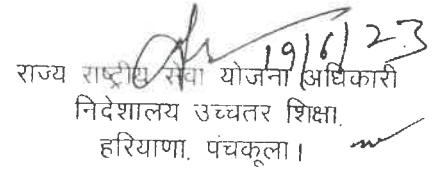 19/6/23
राज्य राष्ट्रीय सेवा योजना अधिकारी
निदेशालय उच्चतर शिक्षा,
हरियाणा, पंचकूला।